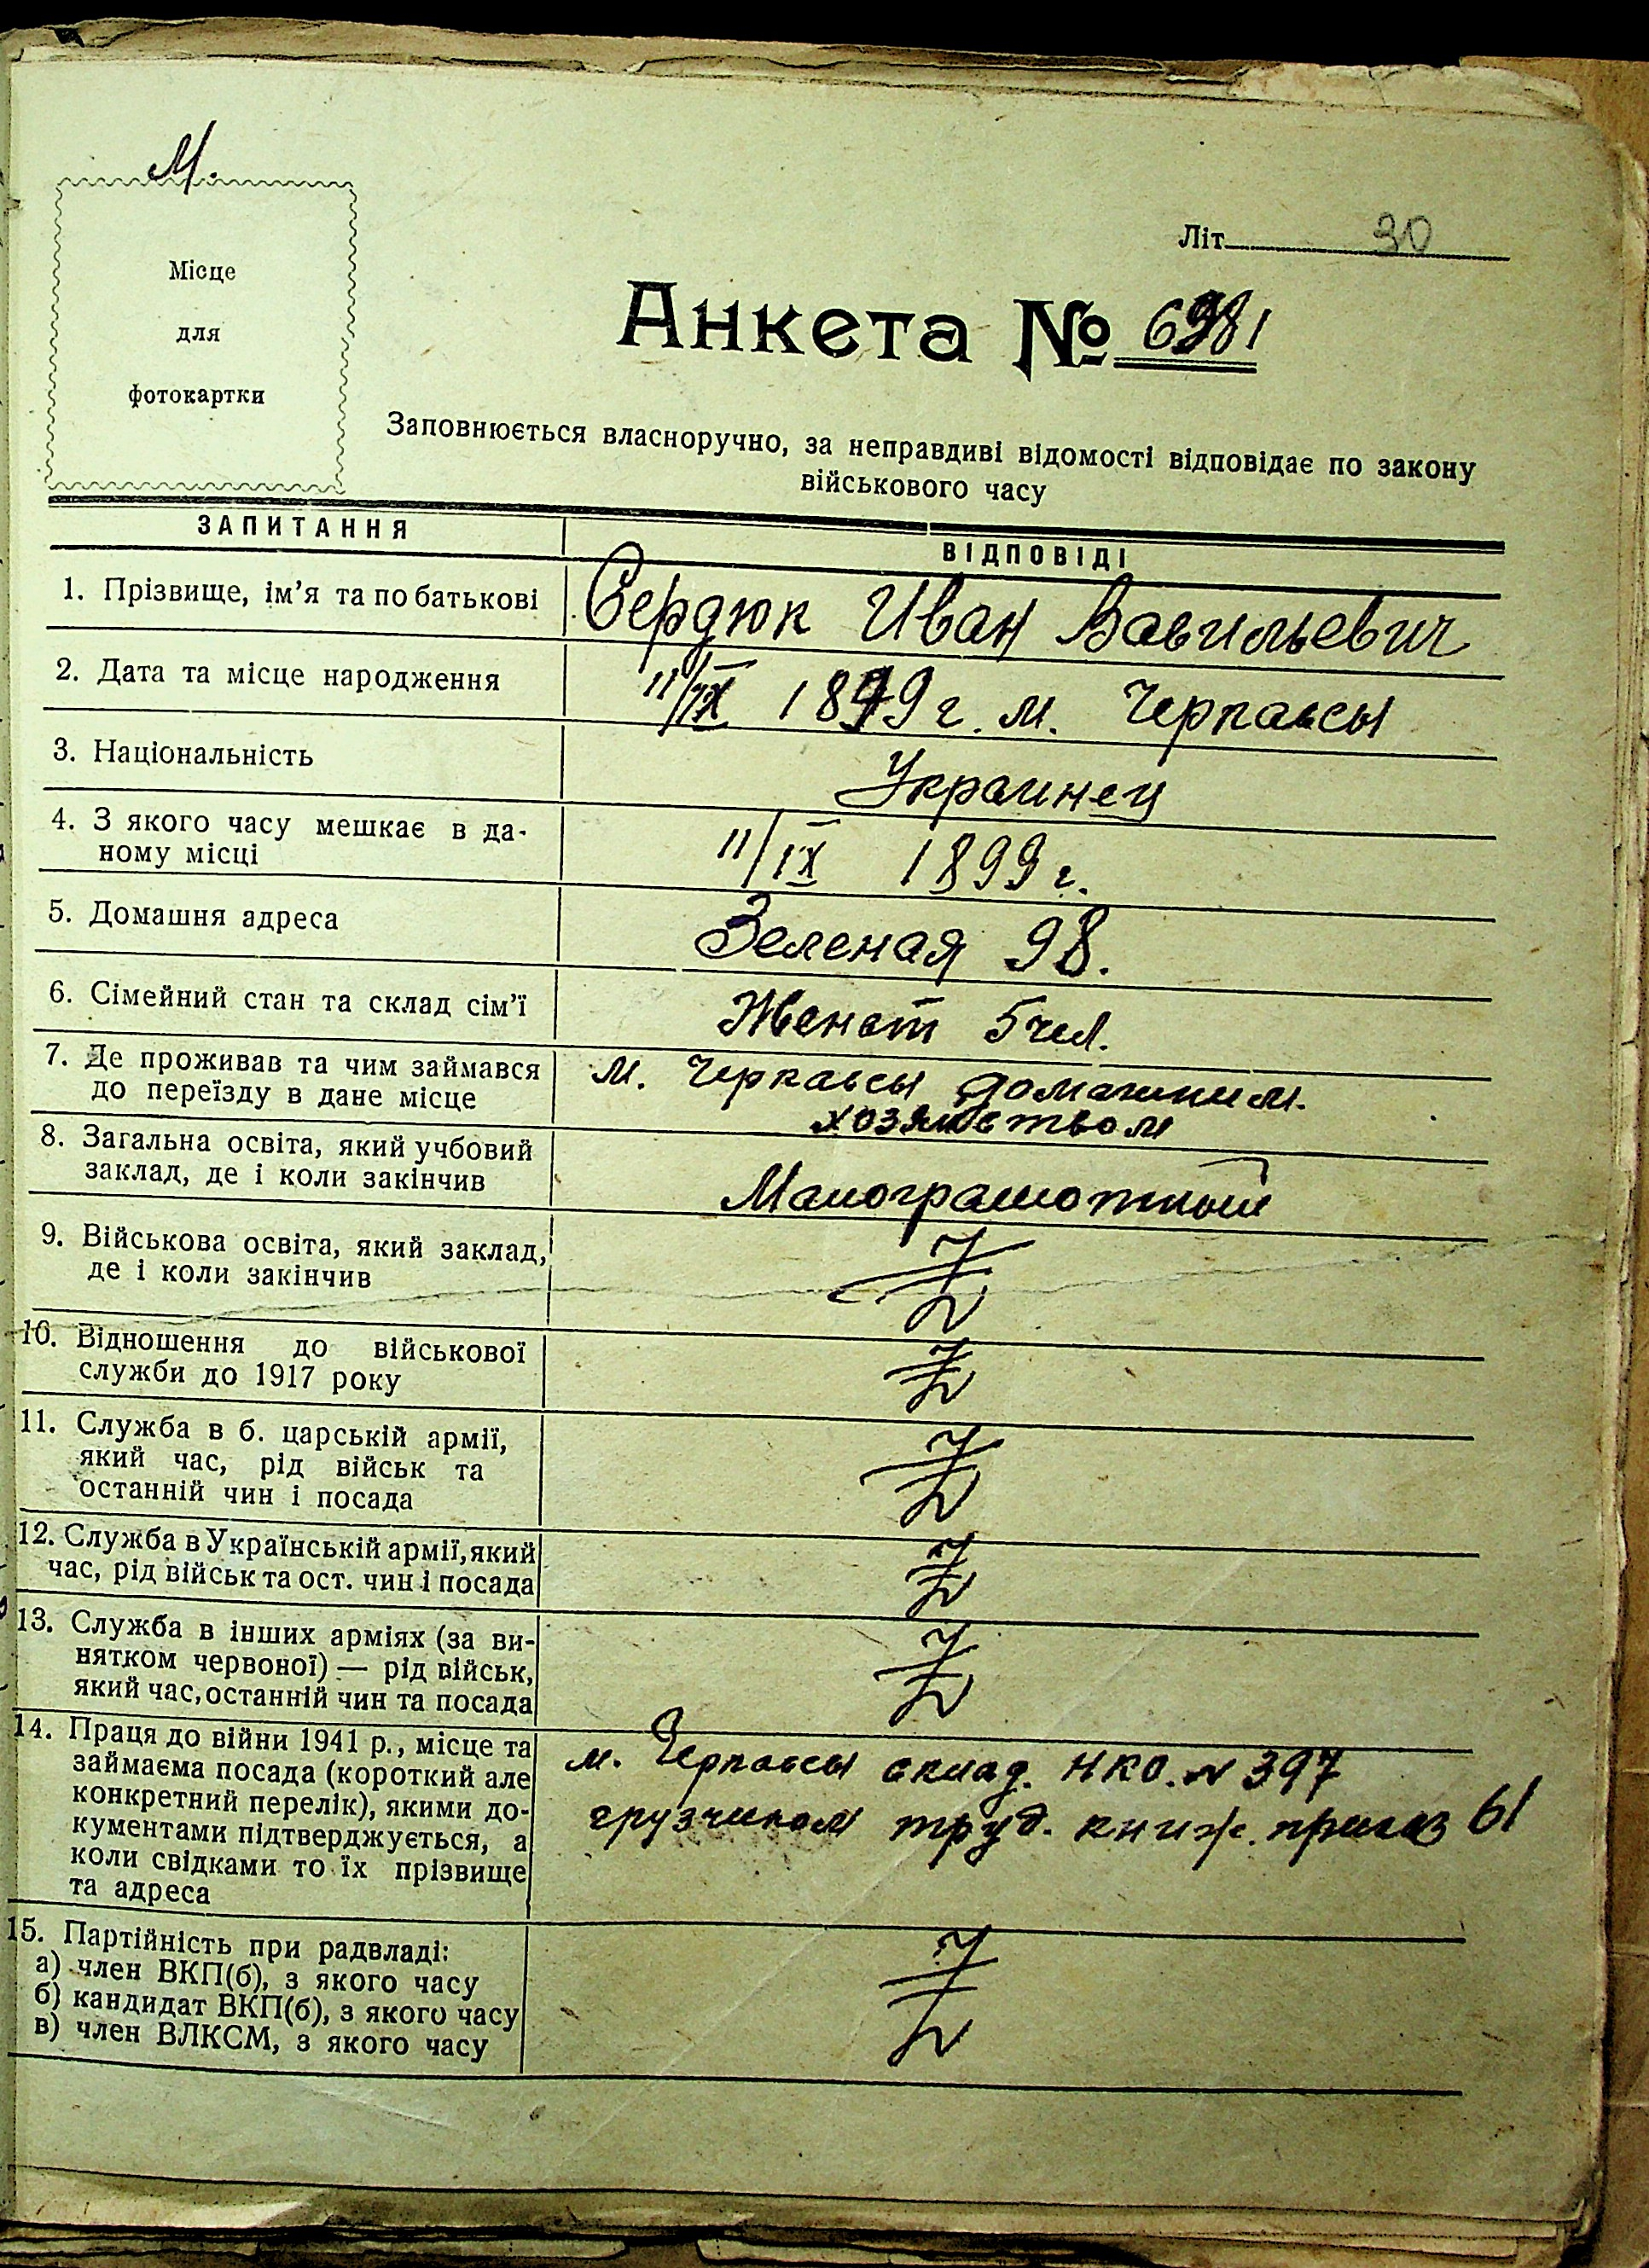 М.
Місце
для
фотокартки
Літ. 30
Анкета № 6981
Заповнюється власноручно, за неправдиві відомості відповідає по закону
військового часу
ЗАПИТАННЯ
ВІДПОВІДІ
1. Прізвище, ім'я та по батькові
Сердюк Иван Васильевич
2. Дата та місце народження
11/IX 1899 г. м. Черкассы
3. Національність
Украинец
4. З якого часу мешкає в да-
ному місці
11/IX 1899 г.
5. Домашня адреса
Зеленая 98.
6. Сімейний стан та склад сім'ї
Женат 5 чел.
7. Де проживав та чим займався
до переїзду в дане місце
м. Черкассы домашним.
хозяйством
8. Загальна освіта, який учбовий
заклад, де і коли закінчив
Малограмотный
9. Військова освіта, який заклад,
де і коли закінчив
10. Відношення до військової
служби до 1917 року
11. Служба в б. царській армії,
який час, рід військ та
останній чин і посада
12. Служба в Українській армії, який
час, рід військ та ост. чин і посада
13. Служба в інших арміях (за ви-
нятком червоної) — рід військ,
який час, останній чин та посада
14. Праця до війни 1941 р., місце та
займаєма посада (короткий але
конкретний перелік), якими до-
кументами підтверджується, а
коли свідками то їх прізвище
та адреса
м. Черкассы склад. НКО. № 397
грузчиком труд. книж. приказ 61
15. Партійність при радвладі:
а) член ВКП(б), з якого часу
б) кандидат ВКП(б), з якого часу
в) член ВЛКСМ, з якого часу